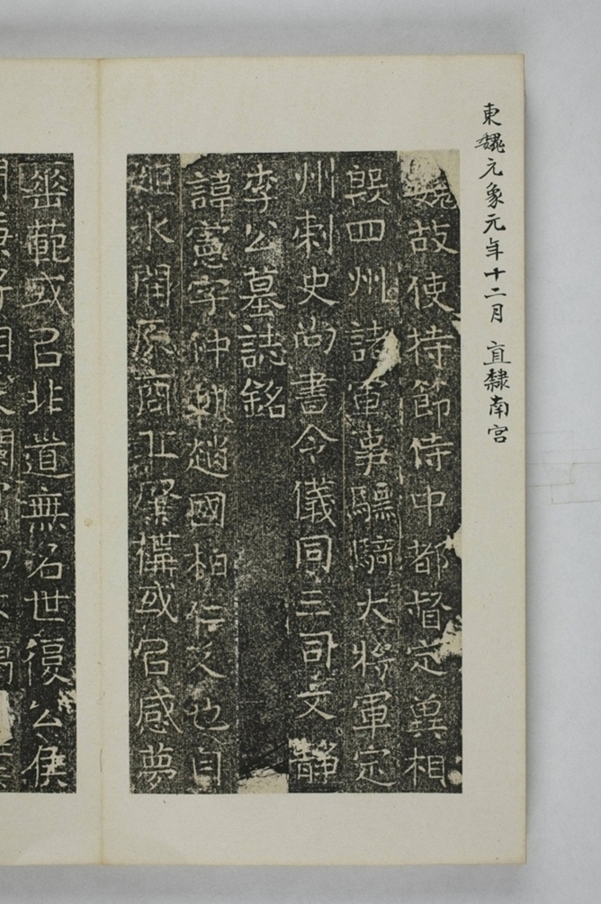 東魏元象元年十二月 直隸南宮
魏故使持節侍中都督定冀相
殷四州諸軍事驃騎大將軍定
州刺史尚書令儀同三司文靜
李公墓誌銘
諱憲字仲軌趙國柏仁人也自
水開原商丘構或㠯感夢
範或㠯非道無名世復公侯